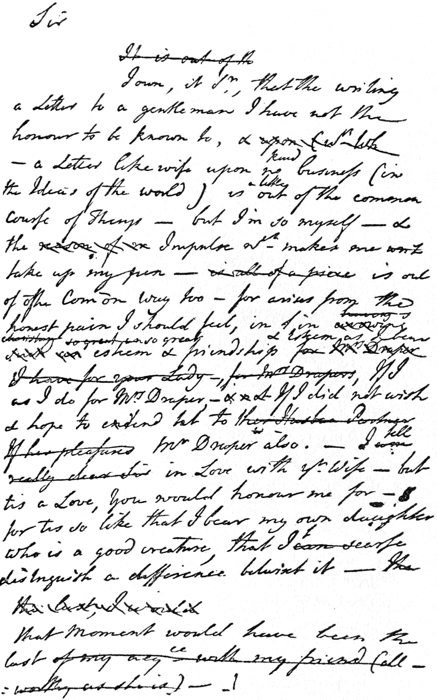 Sir
It is out of th
I own, it Sr, that the writing
a Letter to a gentleman I have not the
honour to be known to, &
kind
— a Letter likewise upon no business (in
the Ideas of the world) is a little out of the common
Course of Things — but I'm so myself — &
the Impulse wch makes me
take up my pen — is all of a piece is out
of the Common way too — for arises from the
having
honest pain I should feel, in
so great esteem & friendship for Mrs Draper
I have for your Lady, for Mrs Draper, If I
as I do for Mrs Draper — If I did not wish
& hope to extend it to
If he pleased Mr Draper also. — I
tell
really dear Sir in Love with yr Wife — but
tis a Love, You would honour me for —
for tis so like that I bear my own daughter
who is a good creature, that I can scarse
distinguish a difference betwixt it — The
that Moment would have been the
last of my acqce with my friend (all-
worthy as she is) — !